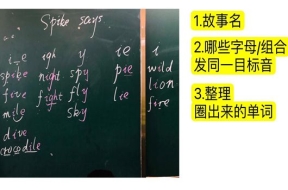 Spike says
i_e igh y ie i
spike night spy pie wild
five fight fly lie lion
mile sky fire
dive
crocodile
1.故事名
2.哪些字母/组合
发同一目标音
3.整理
圈出来的单词